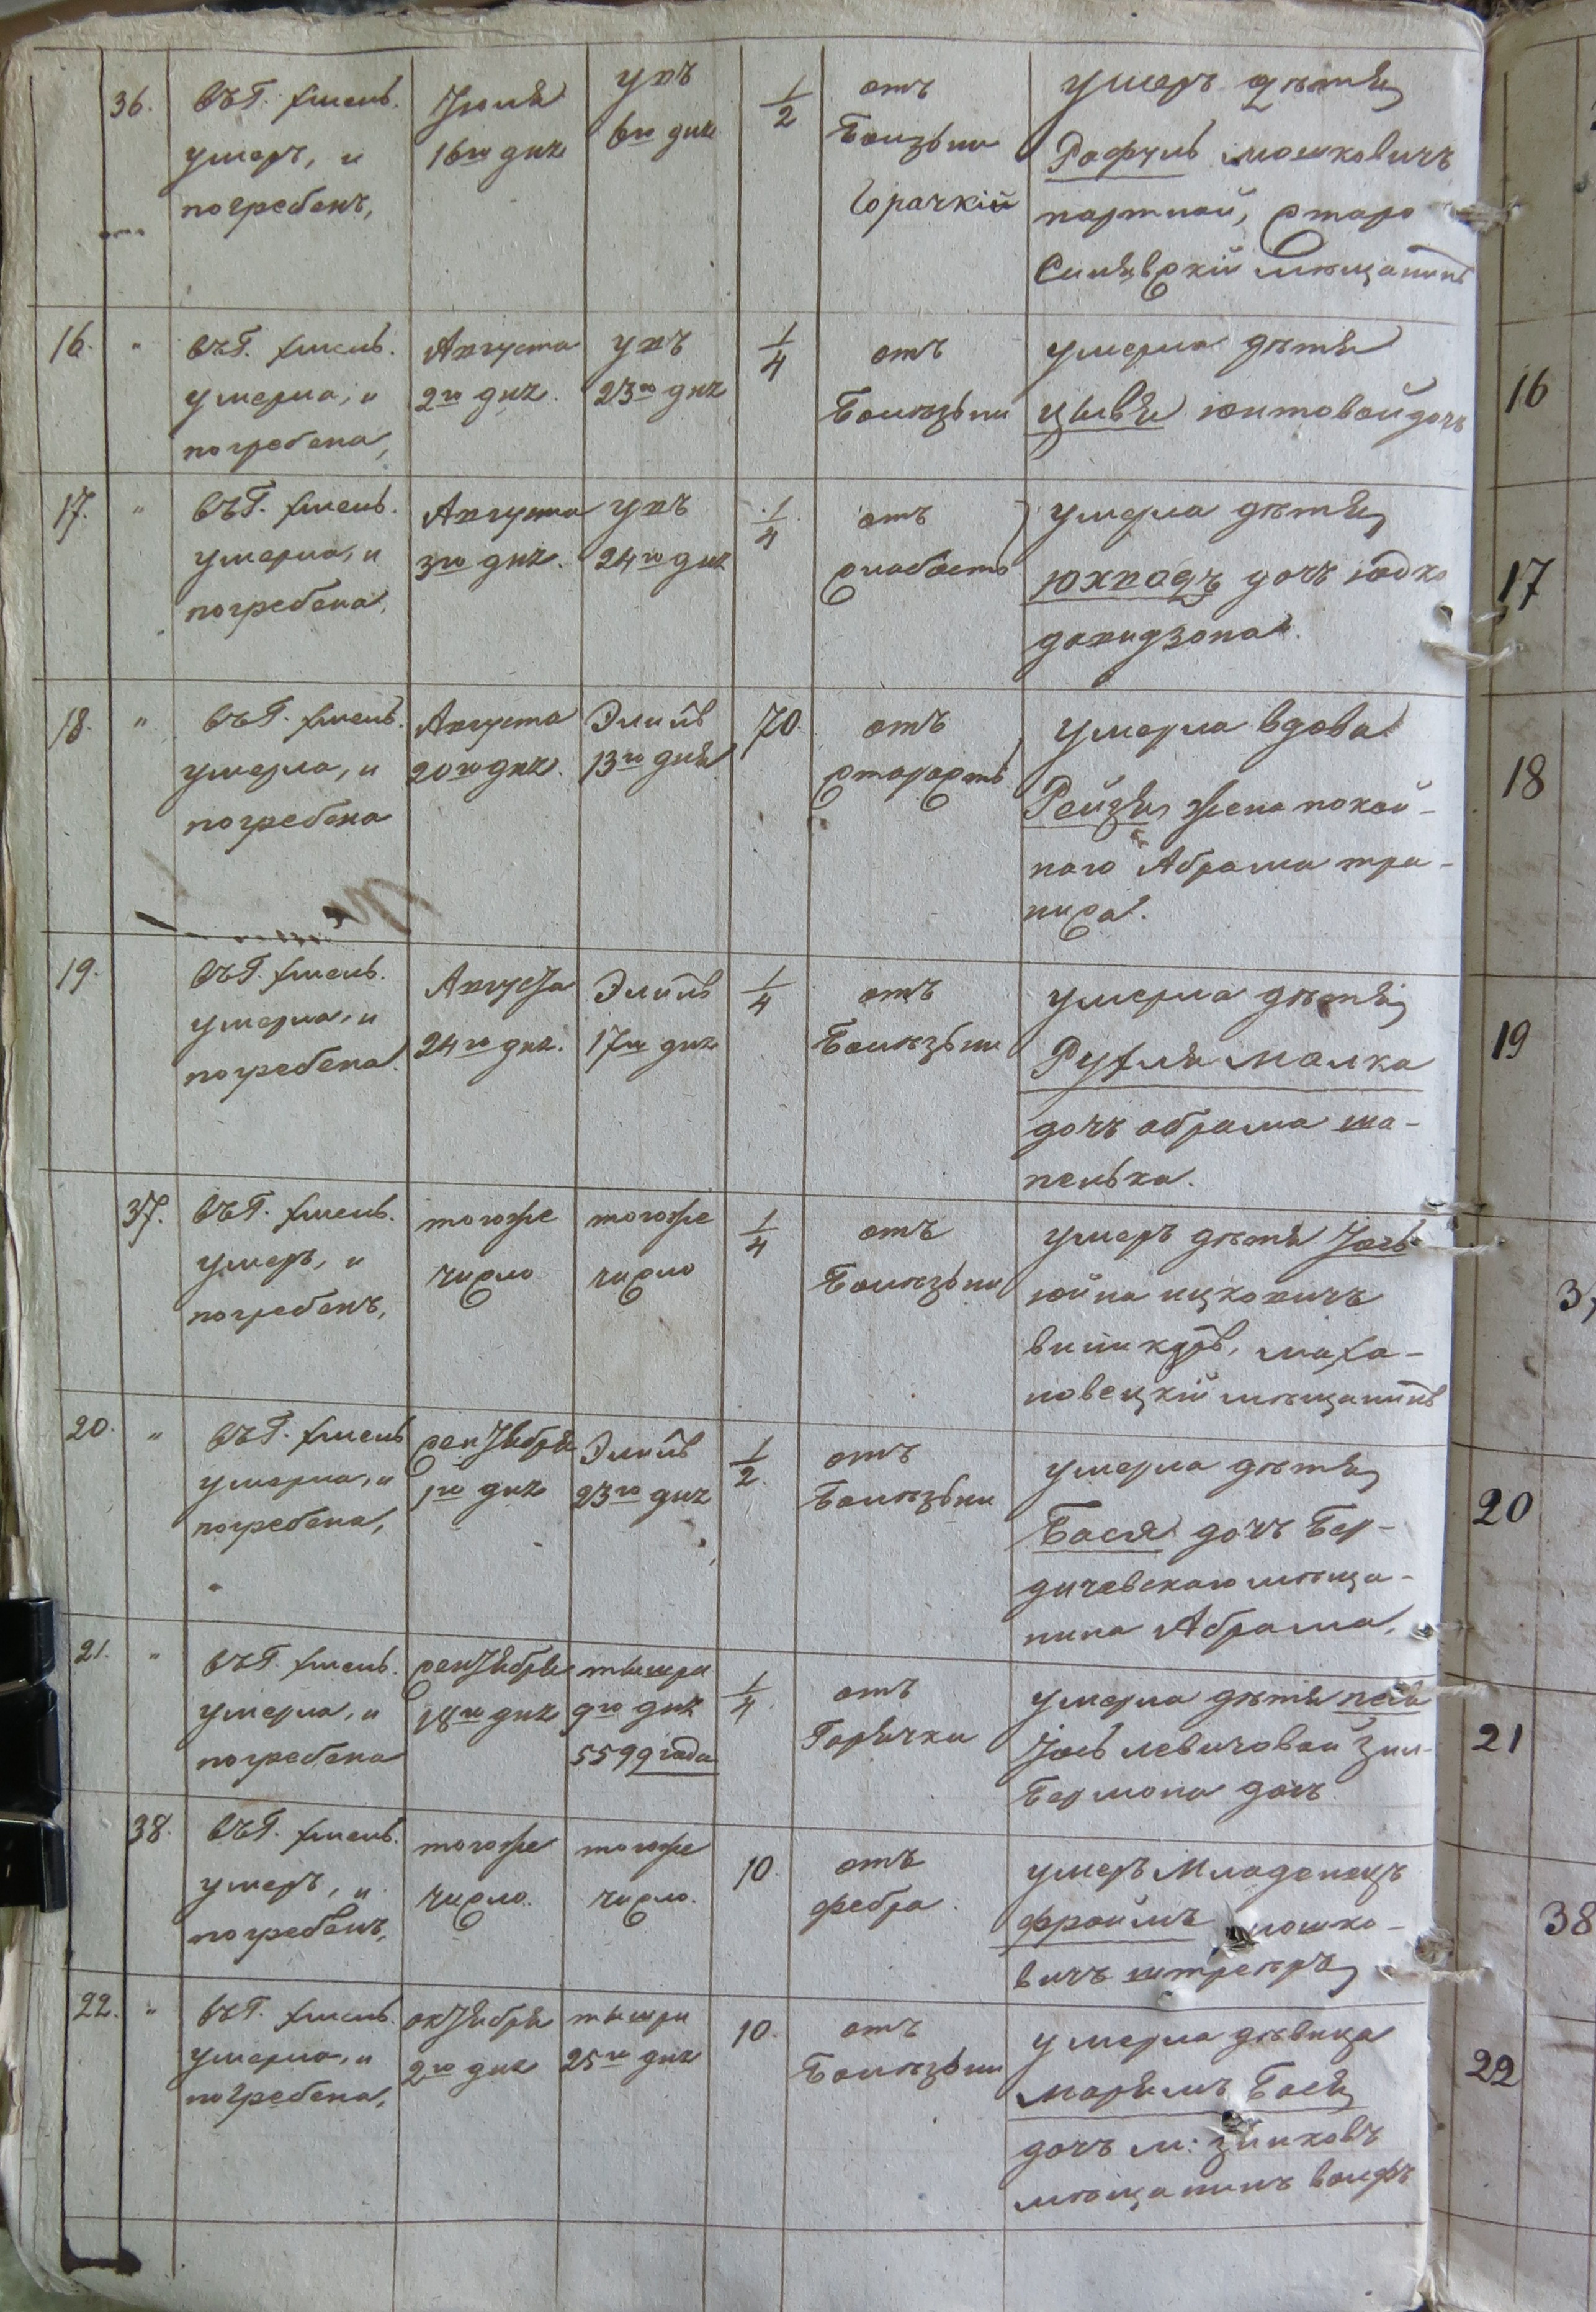 36.
въ Г. Хмель.
умеръ, и
погребенъ,
Іюля
16го дня
ухъ
6го дня
1/2
отъ
Болѣзьни
Горачкій
умеръ дѣтя
Рафуль мошковичъ
портной, Старо
Синявскій мѣщанинъ
16.
"
въ Г. Хмель.
умерла, и
погребена,
Августа
2го дня.
ухъ
23го дня
1/4
отъ
Болѣзьни
умерла дѣтя
цывья дочь
16
17.
"
въ Г. Хмель.
умерла, и
погребена,
Августа
3го дня.
ухъ
24го дня
1/4
отъ
слабость
умерла дѣтя
юхводъ дочъ юдко
давидзона.
17
18.
"
въ Г. Хмель.
умерла, и
погребена
Августа
20го дня.
Элюль
13го дня
70.
отъ
старость
умерла вдова
Рейзя жена покой-
наго Абрама тра-
ниса.
18
19.
въ Г. Хмель.
умерла, и
погребена.
Августа
24го дня.
Элюль
17го дня
1/4
отъ
Болѣзьни
умерла дѣтя
Рухля малка
дочъ абрама ша-
пелька.
19
37.
въ Г. Хмель.
умеръ, и
погребенъ,
тогоже
число
тогоже
число
1/4
отъ
Болѣзьни
умеръ дѣтя Іось
юйна ицковичъ
мѣщанинъ
20.
"
въ Г. Хмель
умерла, и
погребена,
сентября
1го дня
Элюль
23го дня
1/2.
отъ
Болѣзьни
умерла дѣтя
Бася дочъ Бер-
дичевскаго мѣща-
нина Абрама,
20
21.
"
въ Г. Хмель.
умерла, и
погребена
сентября
18го дня
тышри
9го дня
5599 года
1/4
отъ
Горячки
умерла дѣтя песя
Іось левичовой зил-
бермана дочь
21
38.
въ Г. Хмель.
умеръ, и
погребенъ,
тогоже
число.
тогоже
число.
10.
отъ
фебра.
умеръ Младенецъ
фроимъ мошко-
вичъ
38
22.
"
въ Г. Хмель.
умерла, и
погребена,
октября
2го дня
тышри
25го дня
10.
отъ
Болѣзьни
умерла дѣвица
марямъ Бася
дочъ м: зинковъ
мѣщанинъ волфъ
22